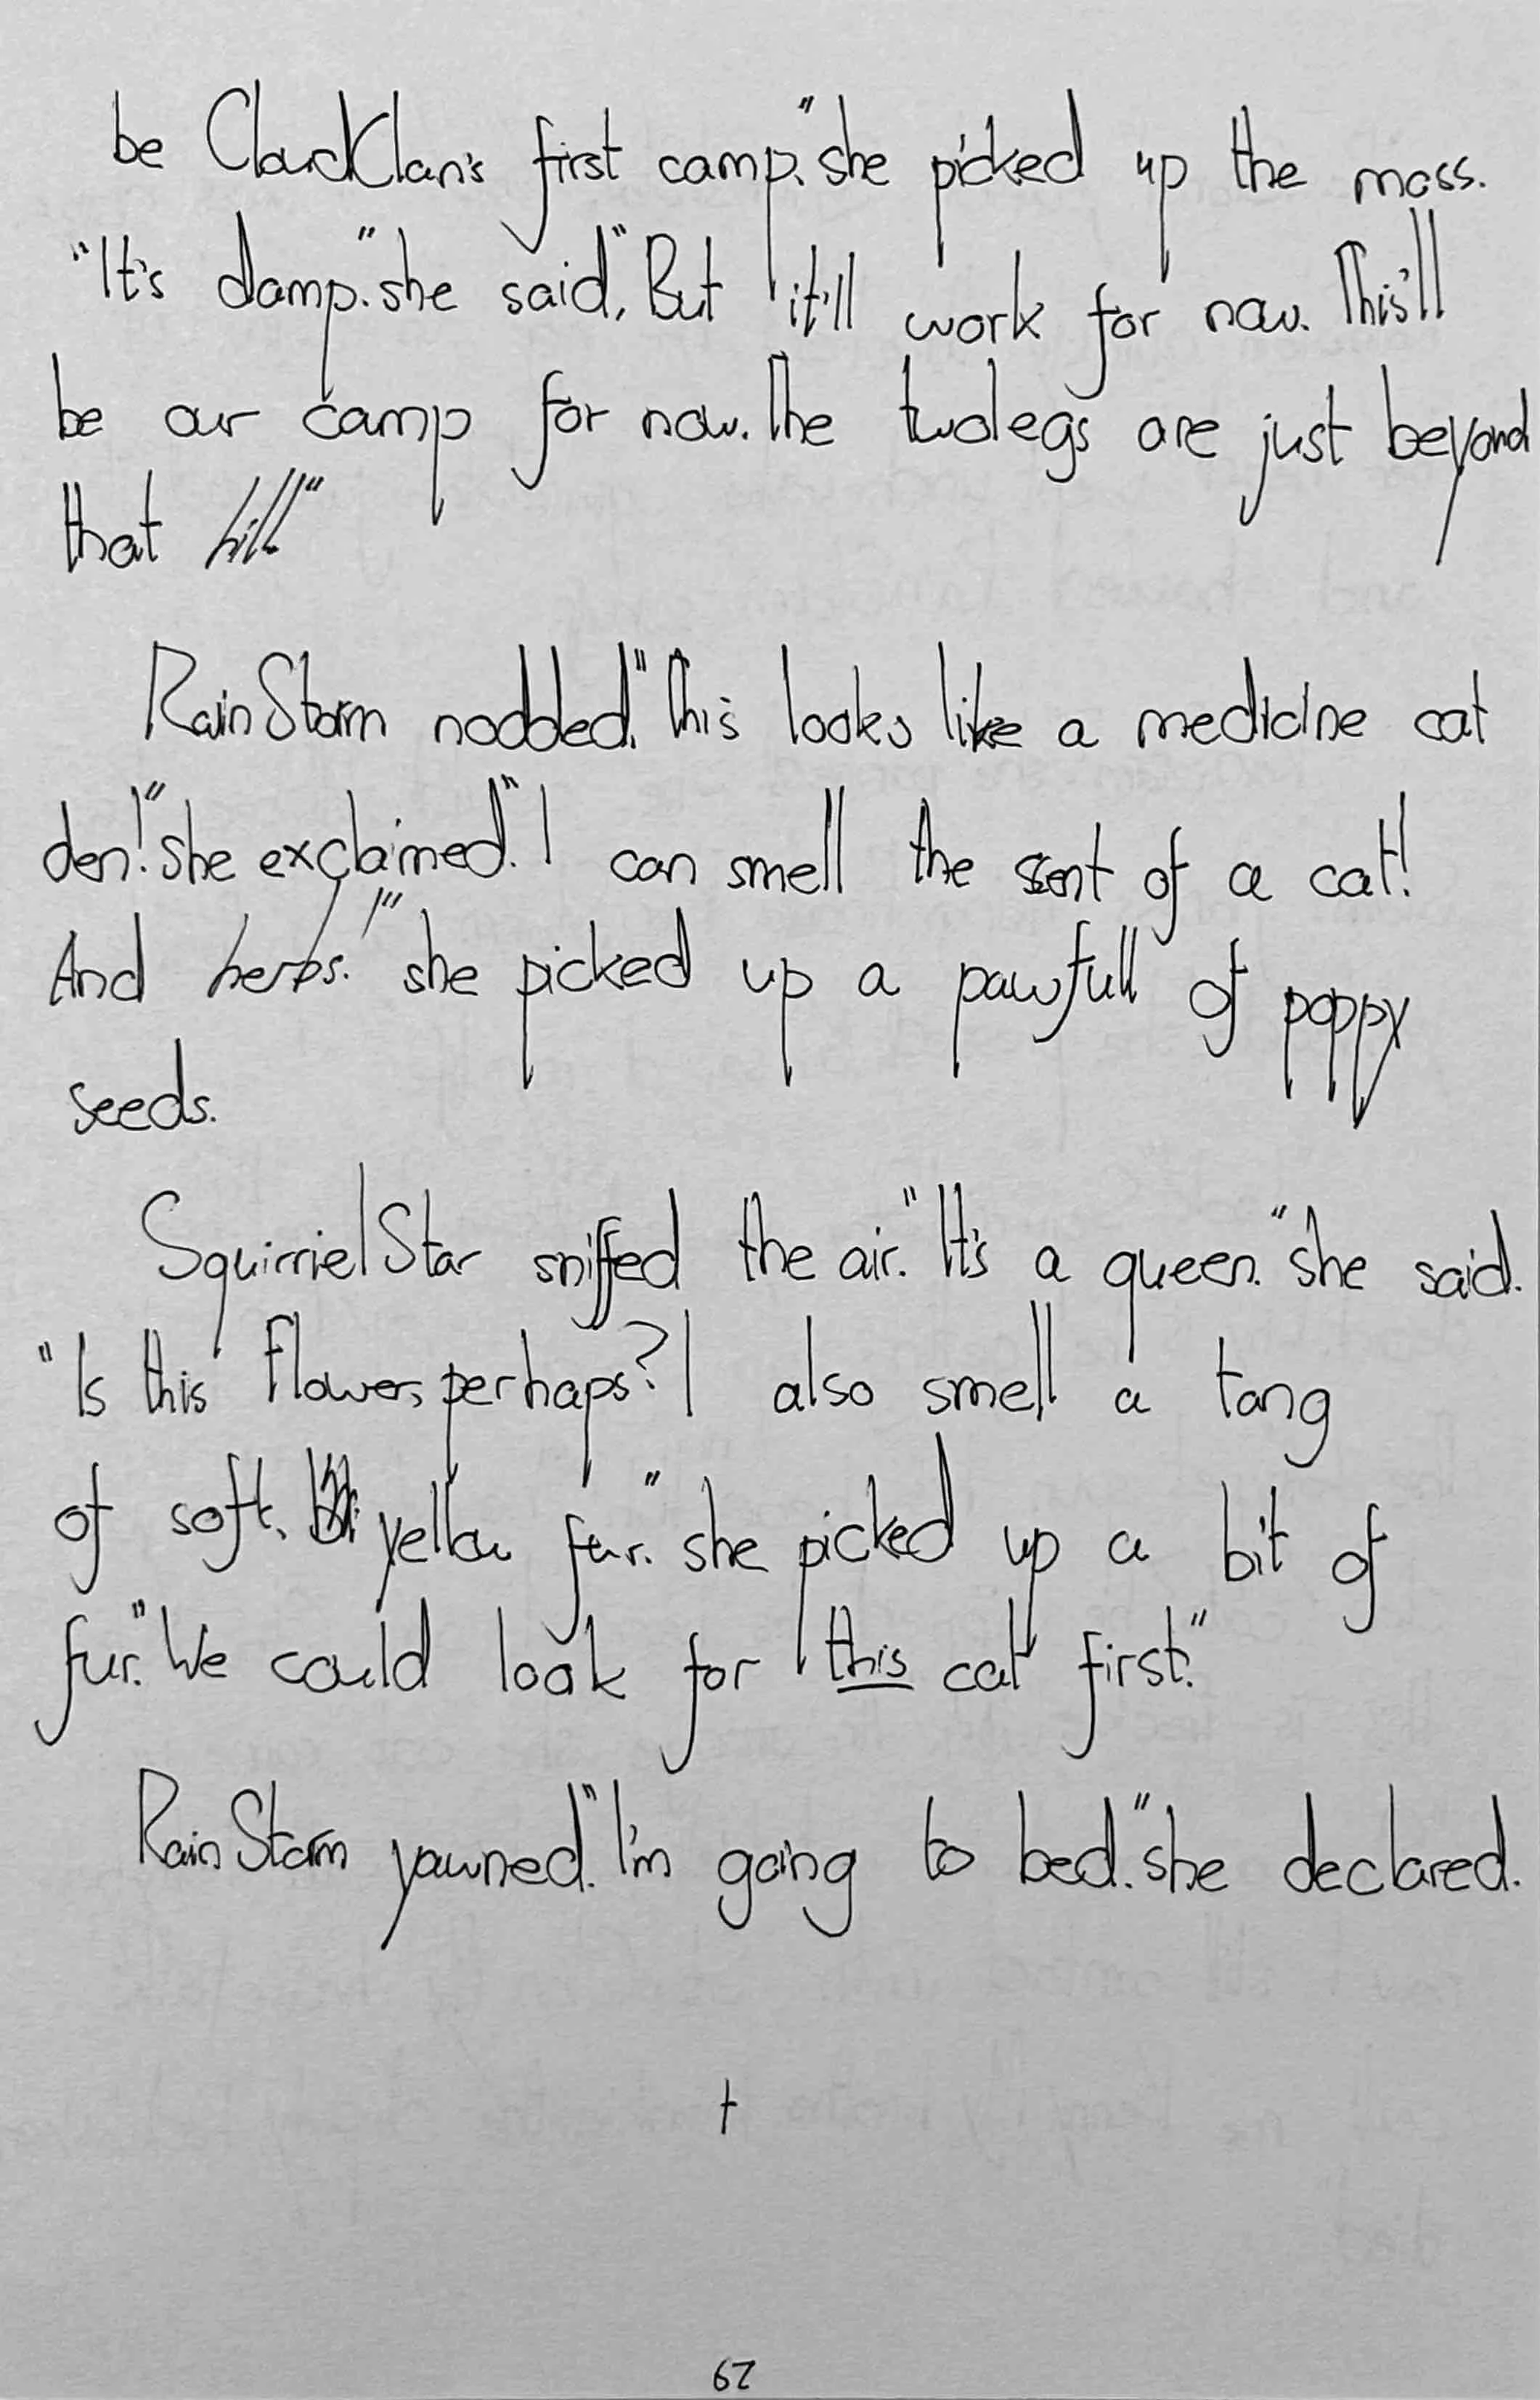 be CloudClan's first camp." she picked up the moss.
"It's damp." she said, "But it'll work for now. This'll
be our camp for now. The twolegs are just beyond
that hill."
RainStorm nodded. "This looks like a medicine cat
den!" she exclaimed. "I can smell the scent of a cat!
And herbs!" she picked up a pawfull of poppy
seeds.
SquirrielStar sniffed the air. "It's a queen." she said.
"Is this Flower, perhaps? I also smell a tang
of soft, yellow fur." she picked up a bit of
fur. "We could look for this cat first."
RainStorm yawned. "I'm going to bed." she declared.
†